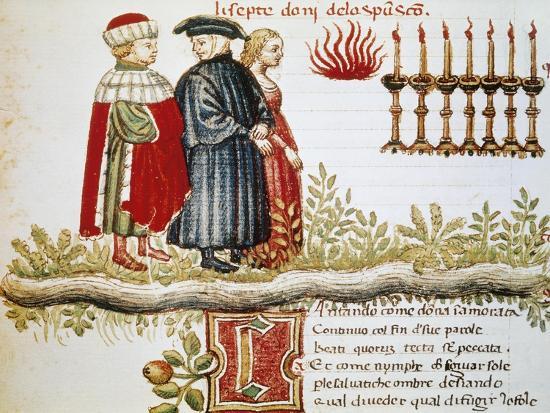 li septe doni delo spũ sc̃o.
C
Antando come dõna inamorata
Continuo col fin d'sue parole
Beati quoruʒ tecta st̃ peccata.
Et come nymphe sole
p le salvatiche ombre desiando
qual diveder e qual difugir lo sole